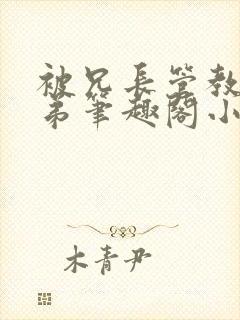 被兄长管教
弟筆趣閣小
木青尹